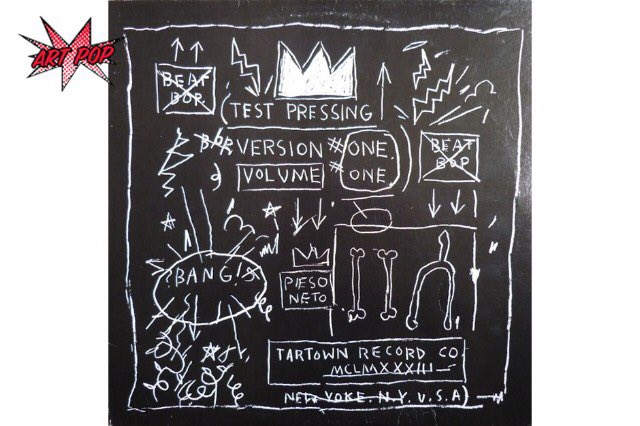 ART POP
BEAT
BOP
(TEST PRESSING
VERSION #ONE.
VOLUME #ONE
BEAT
BOP
BANG!
PIESO
NETO
TARTOWN RECORD CO
MCLMXXXIII
NEW YOKE, N.Y. U.S.A)